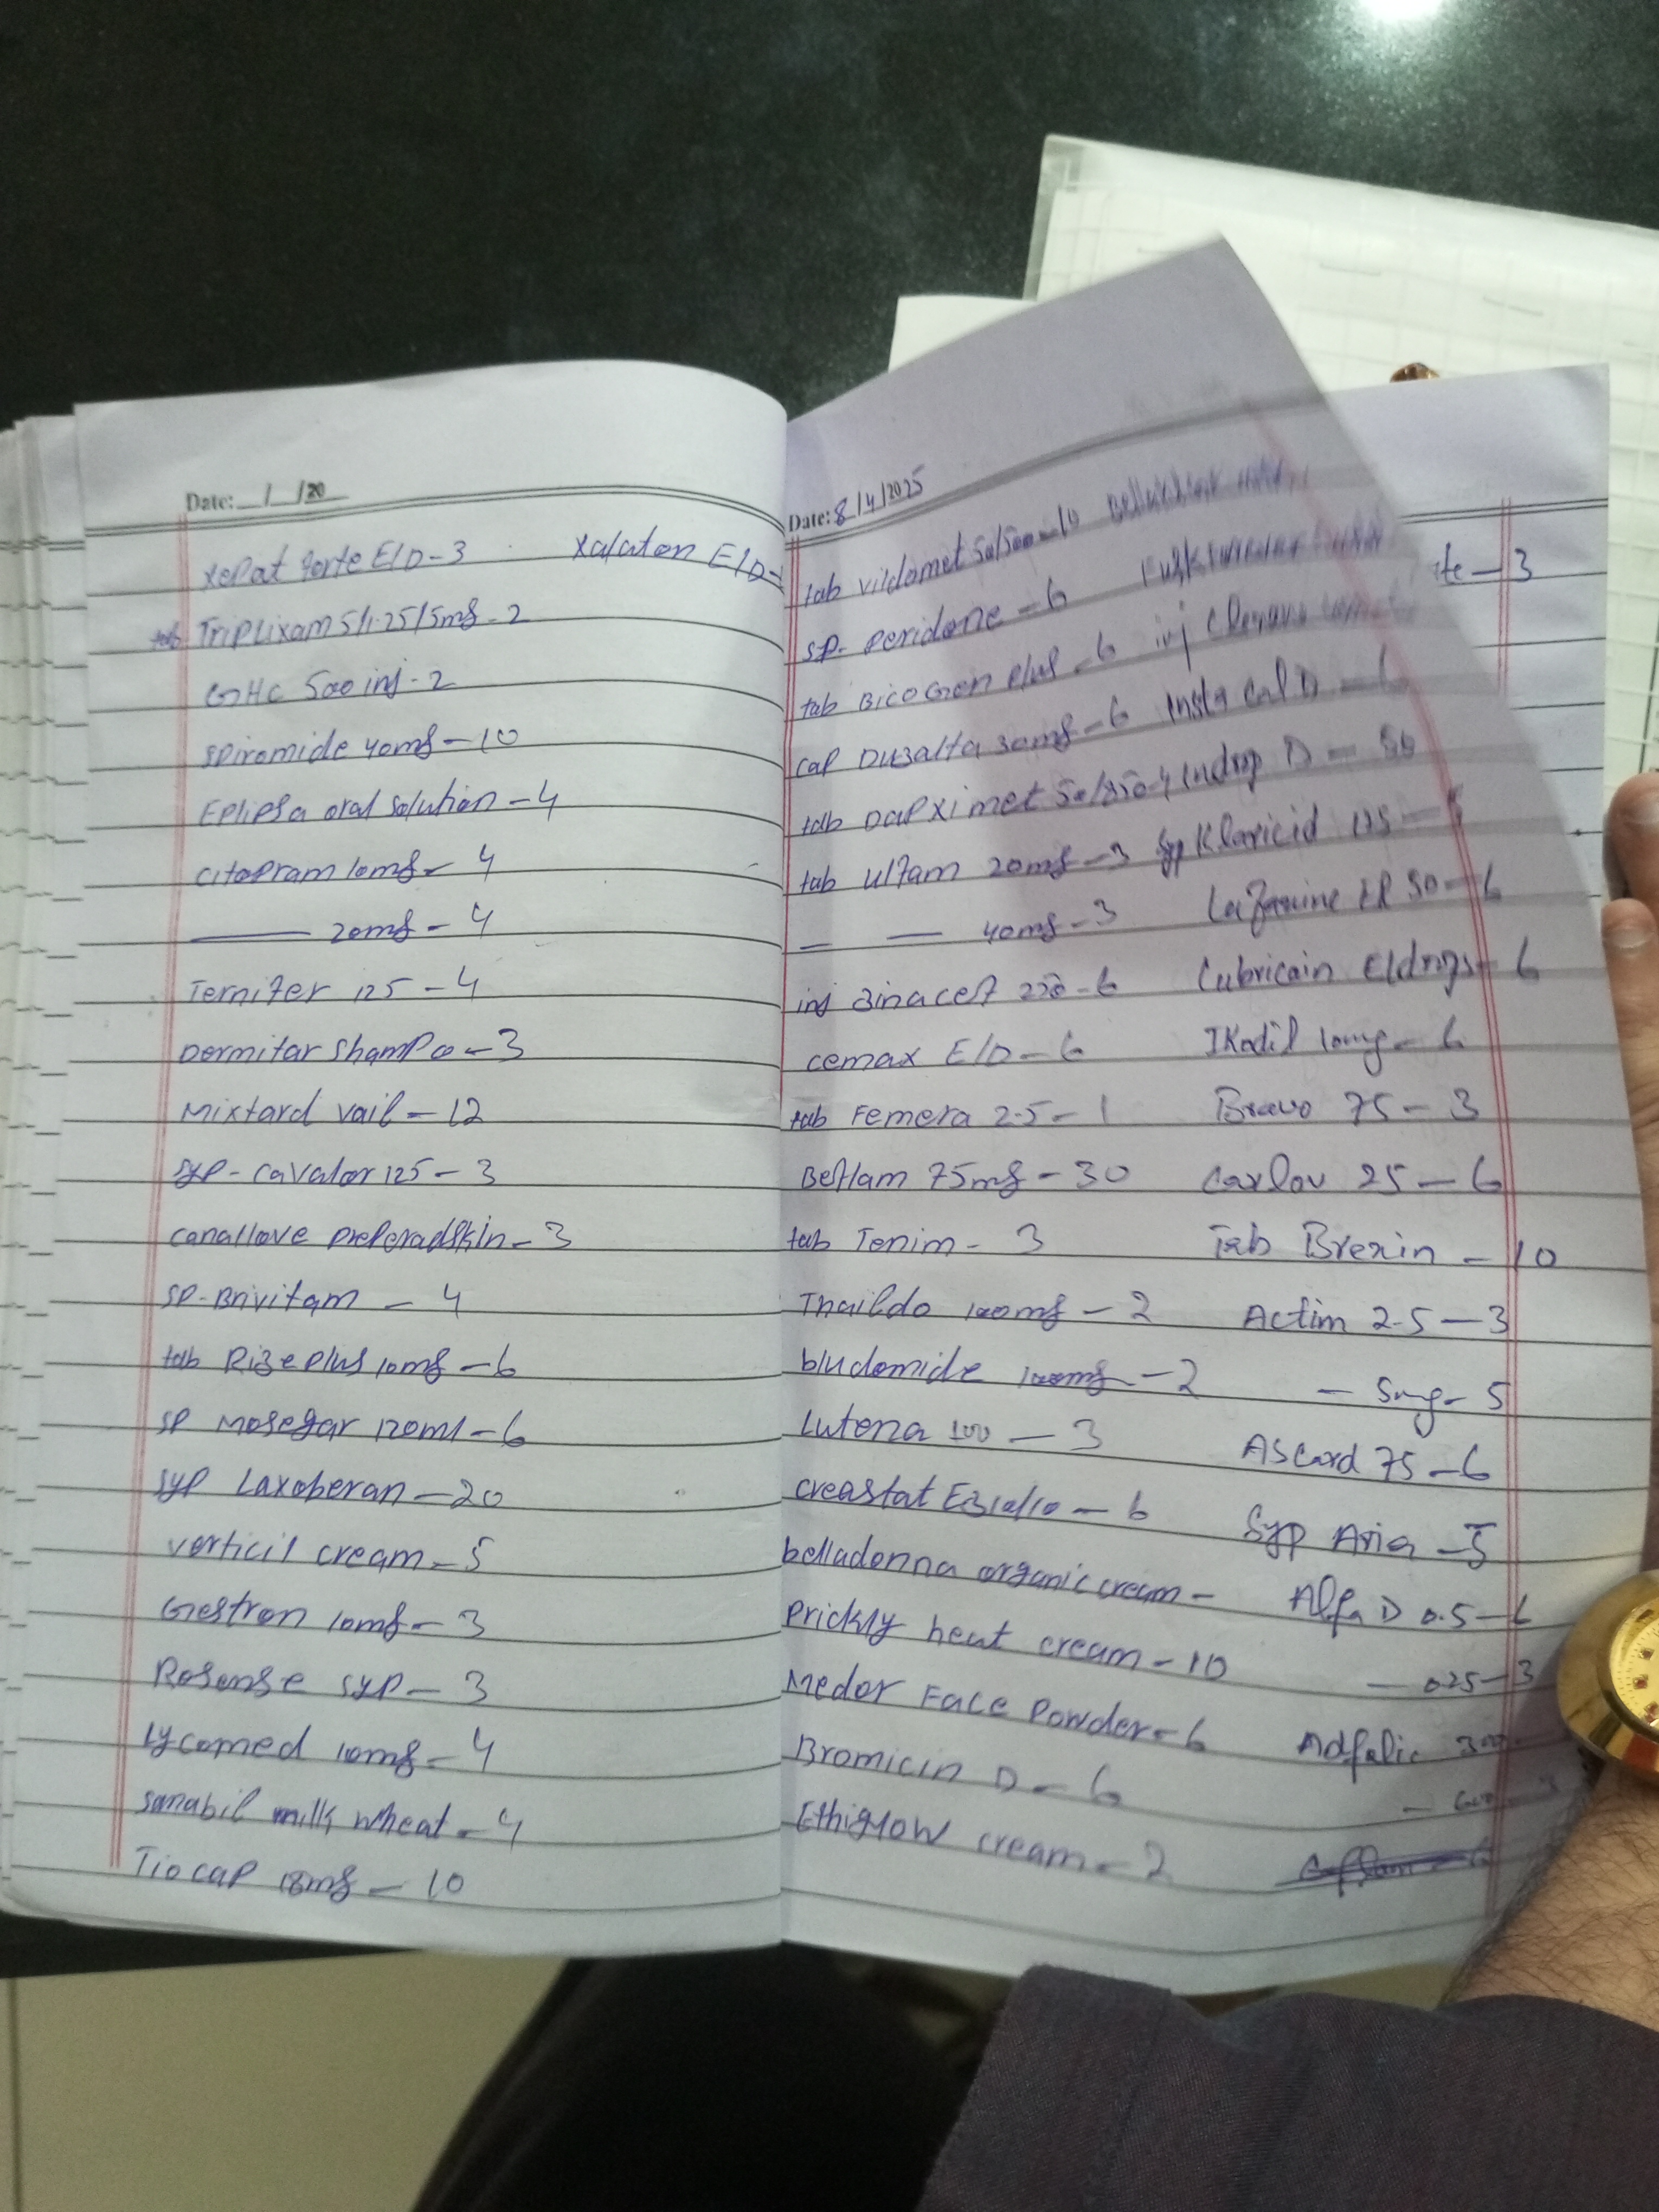 Date: / /20
xepat forte E/D-3 Xalaton E/D-
tab Triplixam 5/1.25/5mg-2
GHC 500 inj-2
spiromide 40mg-10
Eplipsa oral solution-4
citapram 10mg-4
20mg-4
Ternifer 125-4
Dermitar Shampo-3
Mixtard vail-12
syp-cavalor 125-3
SP-Brivitam-4
tab Rize plus 10mg-6
SP Mosegar 120ml-6
syp Laxoberan-20
verticil cream-5
Gestron 10mg-3
Rosense syp-3
Lycomed 10mg-4
sanabil milk wheat-4
Tiocap 18mg-10
Date: 8/4/2025
tab vildomet 50/500-10
SP- peridone-6
tab BicoGen plus-6
cap Duzalta 30mg-6
tab Dapximet
tab Ulfam 20mg-3
40mg-3
inj Zinacef
cemax E/D-6
tab Femera 2.5-1
Beflam 75mg-30
tab Tenim-3
Thaildo 100mg-2
bludomide 100mg-2
Lutena 100-3
creastat EZ 10/10-6
belladonna organic cream-
Prickly heat cream-10
Medor Face Powder-6
Bromicin D-6
Ethiglow cream-2
te-3
inj
Insta Cal D-6
Indrop D-50
syp Klaricid 125-5
Lubricain E/drops-6
Ikodil 10mg-6
Bravo 75-3
Carlov 25-6
Tab Brexin-10
Actim 2.5-3
- 5mg-5
Ascard 75-6
Syp Aria-5
Alfa D 0.5-6
- 0.25-3
Adfolic